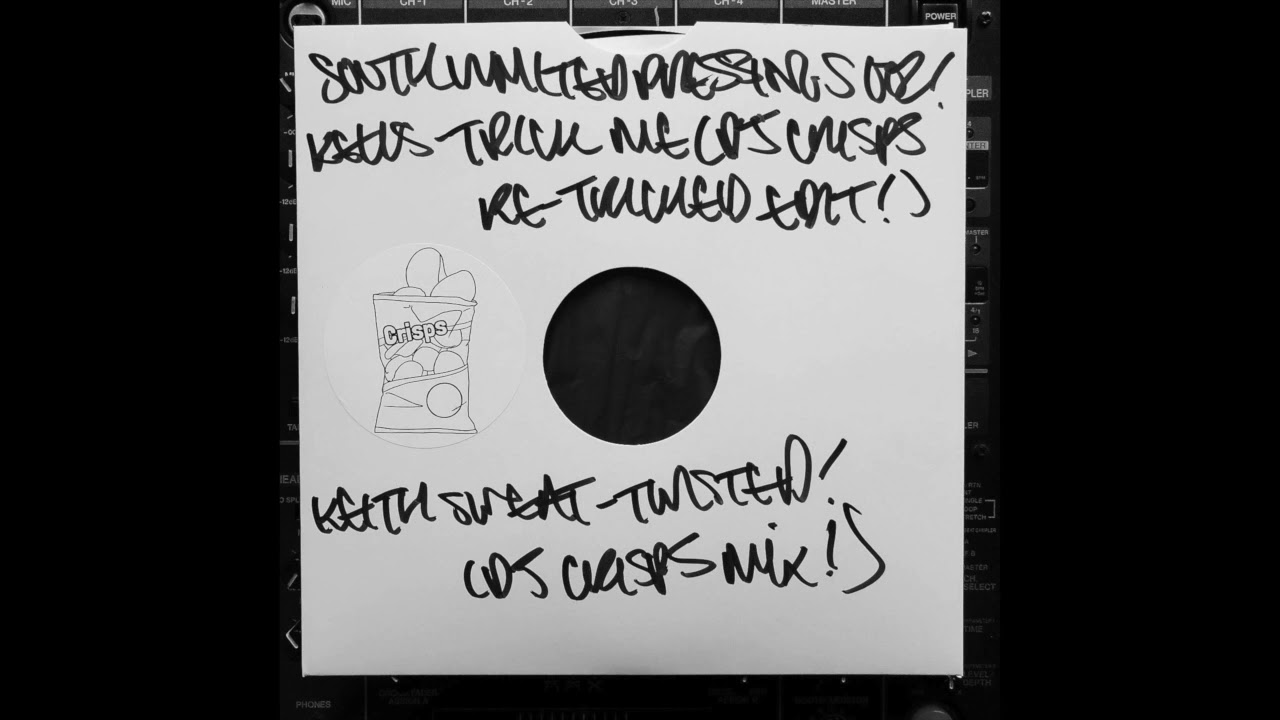 MIC CH-1 CH-2 CH-3 CH-4 MASTER
POWER
SOUTH LIMITED PRESSINGS 002!
KELIS-TRICK ME (DJ CRISPS
RE-TRICKED EDIT!)
Crisps
KEITH SWEAT-TWISTED!
(DJ CRISPS MIX!)
PHONES